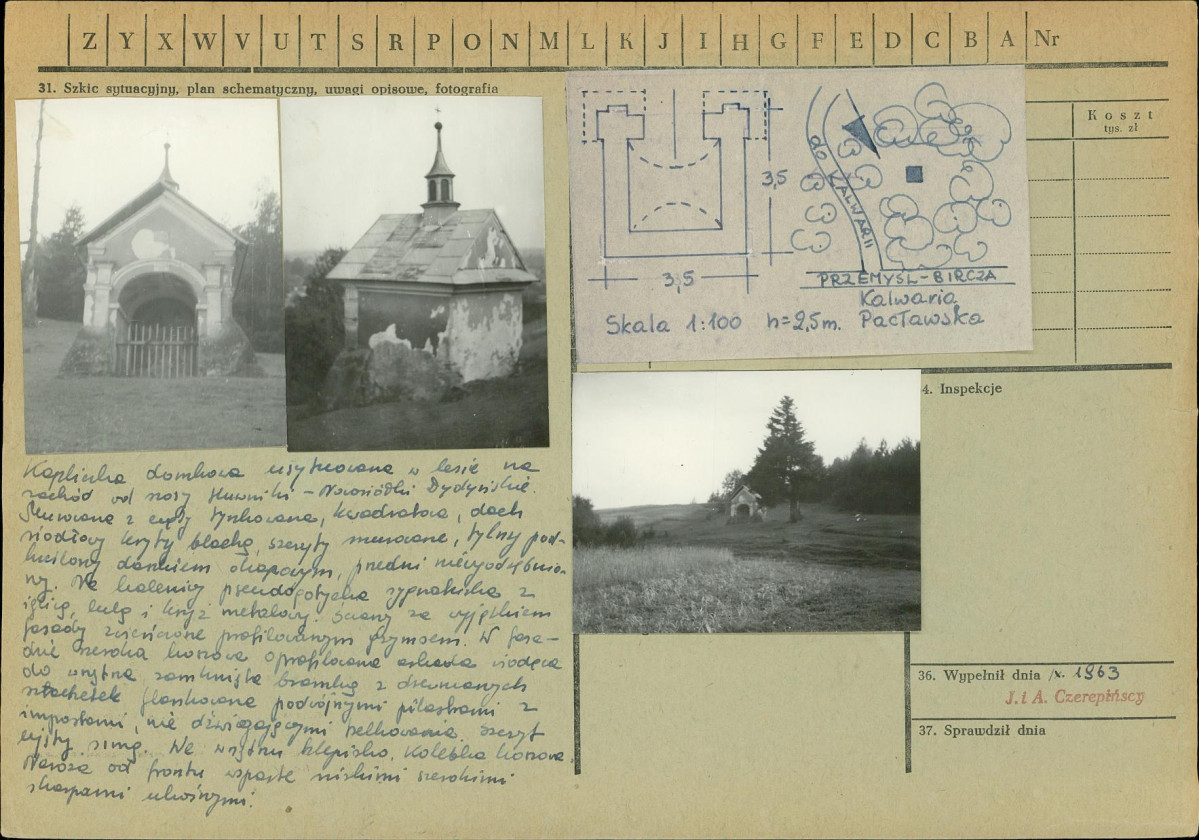 Z Y X W V U T S R P O N M L K J I H G F E D C B A Nr
31. Szkic sytuacyjny, plan schematyczny, uwagi opisowe, fotografia
Koszt
tys. zł
3,5
3,5
do KALWARII
PRZEMYŚL-BIRCZA
Kalwaria
Skala 1:100 h=2,5m. Pacławska
4. Inspekcje
Kapliczka domkowa usytuowana w lesie na
zachód od szosy Huwniki - Nowosiółki Dydyńskie.
Murowana z cegły tynkowana, kwadratowa, dach
siodłowy kryty blachą, szczyty murowane, tylny pod-
kreślony daszkiem okapowym, przedni niewyodrębnio-
ny. Na kalenicy pseudogotycka sygnaturka z
iglicą, kulą i krzyż metalowy. Ściany za wyjątkiem
fasady zwieńczone profilowanym gzymsem. W fasa-
dzie szeroka koszowa oprofilowana arkada wiodąca
do wnętrza zamknięta bramką z drewnianych
sztachetek flankowana podwójnymi pilastrami z
impostami, nie dźwigającymi belkowania. Szczyt
We wnętrzu klepisko. Kolebka koszowa.
Naroża od frontu wsparte niskimi szerokimi
skarpami ukośnymi.
36. Wypełnił dnia /x. 1963
J. i A. Czerepińscy
37. Sprawdził dnia